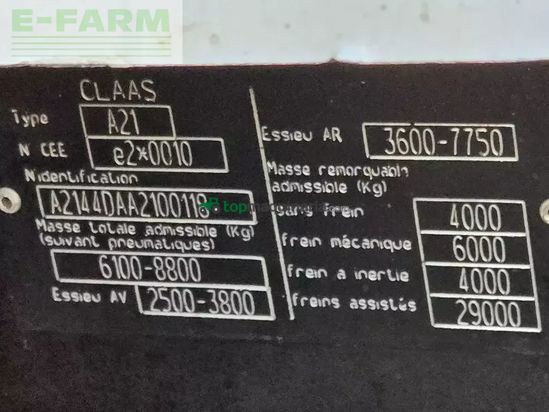 E-FARM
CLAAS
Type A21
N CEE e2*0010
Nidentification
A2144DAA2100118
Masse totale admissible (Kg)
(suivant pneumatiques)
6100-8800
Essieu AV 2500-3800
Essieu AR 3600-7750
Masse remorquable
admissible (Kg)
sans frein 4000
frein mécanique 6000
frein a inertie 4000
freins assistés 29000